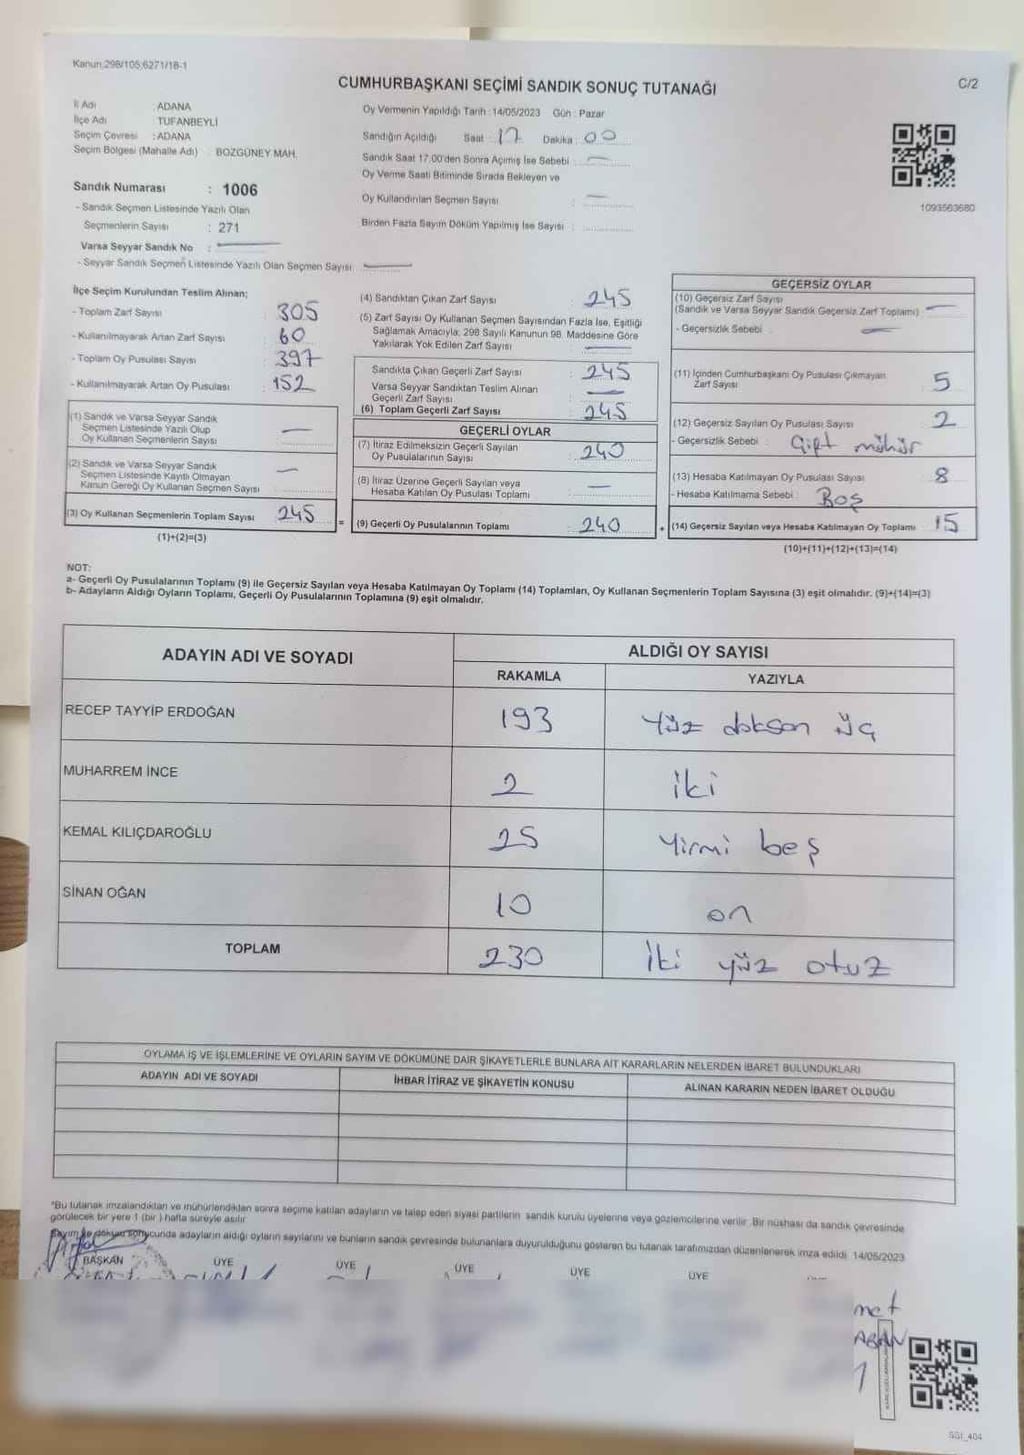 Kanun.298/105,6271/18-1
CUMHURBAŞKANI SEÇİMİ SANDIK SONUÇ TUTANAĞI
C/2
İl Adı : ADANA
İlçe Adı : TUFANBEYLİ
Seçim Çevresi : ADANA
Seçim Bölgesi (Mahalle Adı) BOZGÜNEY MAH.
Sandık Numarası : 1006
- Sandık Seçmen Listesinde Yazılı Olan
Seçmenlerin Sayısı : 271
Varsa Seyyar Sandık No :
- Seyyar Sandık Seçmen Listesinde Yazılı Olan Seçmen Sayısı:
Oy Vermenin Yapıldığı Tarih : 14/05/2023 Gün : Pazar
Sandığın Açıldığı Saat : 17 Dakika : 00
Sandık Saat 17:00'den Sonra Açımış İse Sebebi :
Oy Verme Saati Bitiminde Sırada Bekleyen ve
Oy Kullandırılan Seçmen Sayısı :
Birden Fazla Sayım Döküm Yapılmış İse Sayısı :
1093563680
İlçe Seçim Kurulundan Teslim Alınan;
- Toplam Zarf Sayısı : 305
- Kullanılmayarak Artan Zarf Sayısı : 60
- Toplam Oy Pusulası Sayısı : 397
- Kullanılmayarak Artan Oy Pusulası : 152
(1) Sandık ve Varsa Seyyar Sandık
Seçmen Listesinde Yazılı Olup
Oy Kullanan Seçmenlerin Sayısı
(2) Sandık ve Varsa Seyyar Sandık
Seçmen Listesinde Kayıtlı Olmayan
Kanun Gereği Oy Kullanan Seçmen Sayısı
(3) Oy Kullanan Seçmenlerin Toplam Sayısı 245
(1)+(2)=(3)
=
(4) Sandıktan Çıkan Zarf Sayısı : 245
(5) Zarf Sayısı Oy Kullanan Seçmen Sayısından Fazla İse, Eşitliği
Sağlamak Amacıyla; 298 Sayılı Kanunun 98. Maddesine Göre
Yakılarak Yok Edilen Zarf Sayısı :
Sandıkta Çıkan Geçerli Zarf Sayısı : 245
Varsa Seyyar Sandıktan Teslim Alınan
Geçerli Zarf Sayısı :
(6) Toplam Geçerli Zarf Sayısı : 245
GEÇERLİ OYLAR
(7) İtiraz Edilmeksizin Geçerli Sayılan
Oy Pusulalarının Sayısı : 240
(8) İtiraz Üzerine Geçerli Sayılan veya
Hesaba Katılan Oy Pusulası Toplamı :
(9) Geçerli Oy Pusulalarının Toplamı : 240
+
GEÇERSİZ OYLAR
(10) Geçersiz Zarf Sayısı
(Sandık ve Varsa Seyyar Sandık Geçersiz Zarf Toplamı) :
- Geçersizlik Sebebi :
(11) İçinden Cumhurbaşkanı Oy Pusulası Çıkmayan
Zarf Sayısı : 5
(12) Geçersiz Sayılan Oy Pusulası Sayısı : 2
- Geçersizlik Sebebi : Çift mühür
(13) Hesaba Katılmayan Oy Pusulası Sayısı : 8
- Hesaba Katılmama Sebebi : Boş
(14) Geçersiz Sayılan veya Hesaba Katılmayan Oy Toplamı : 15
(10)+(11)+(12)+(13)=(14)
NOT:
a- Geçerli Oy Pusulalarının Toplamı (9) ile Geçersiz Sayılan veya Hesaba Katılmayan Oy Toplamı (14) Toplamları, Oy Kullanan Seçmenlerin Toplam Sayısına (3) eşit olmalıdır. (9)+(14)=(3)
b- Adayların Aldığı Oyların Toplamı, Geçerli Oy Pusulalarının Toplamına (9) eşit olmalıdır.
ADAYIN ADI VE SOYADI
ALDIĞI OY SAYISI
RAKAMLA YAZIYLA
RECEP TAYYİP ERDOĞAN 193 Yüz doksan üç
MUHARREM İNCE 2 iki
KEMAL KILIÇDAROĞLU 25 Yirmi beş
SİNAN OĞAN 10 on
TOPLAM 230 İki yüz otuz
OYLAMA İŞ VE İŞLEMLERİNE VE OYLARIN SAYIM VE DÖKÜMÜNE DAİR ŞİKAYETLERLE BUNLARA AİT KARARLARIN NELERDEN İBARET BULUNDUKLARI
ADAYIN ADI VE SOYADI İHBAR İTİRAZ VE ŞİKAYETİN KONUSU ALINAN KARARIN NEDEN İBARET OLDUĞU
*Bu tutanak imzalandıktan ve mühürlendikten sonra seçime katılan adayların ve talep eden siyasi partilerin sandık kurulu üyelerine veya gözlemcilerine verilir. Bir nüshası da sandık çevresinde
görülecek bir yere 1 (bir) hafta süreyle asılır.
Sayım ve dökümü sonucunda adayların aldığı oyların sayılarını ve bunların sandık çevresinde bulunanlara duyurulduğunu gösteren bu tutanak tarafımızdan düzenlenerek imza edildi. 14/05/2023
BAŞKAN ÜYE ÜYE ÜYE ÜYE ÜYE
met
SGI_404